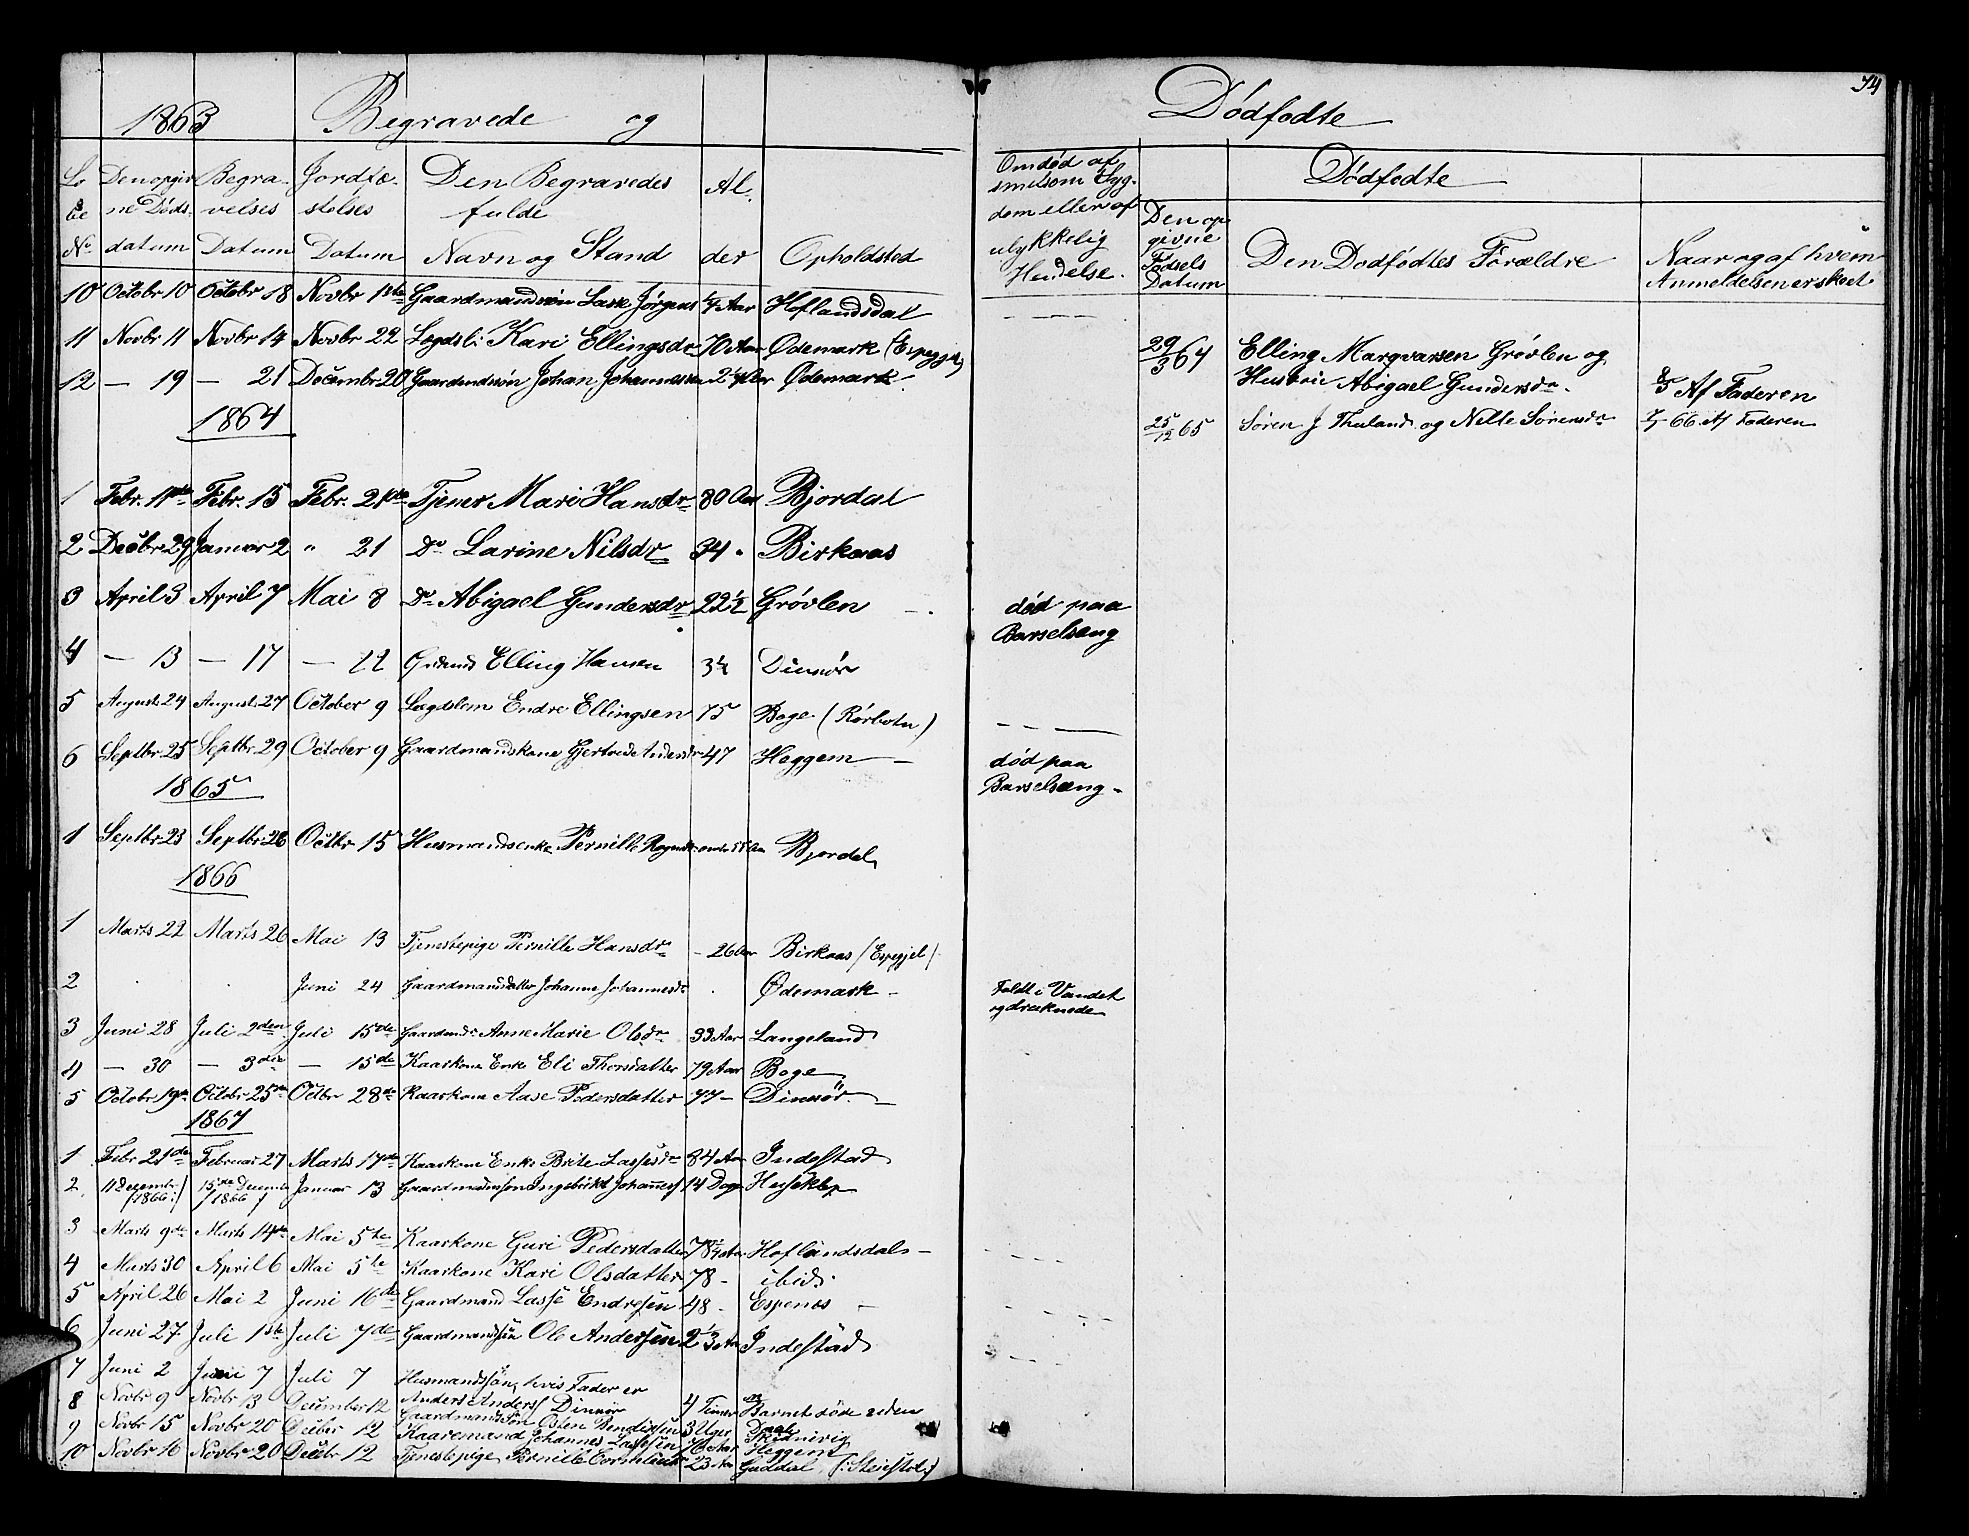 74
1863 Begravede og Dødfødte
Lø Den opgiv Begra- Jordfæ- Den Begravedes Al.
be ne Døds- velses stelses fulde
No datum Datum Datum Navn og Stand der Opholdsted
10 Octobr 10 Octobr 18 Novbr 1ste Gaardmandssøn Lasse Jørgens 4 Aar Hoflandsdal
11 Novbr 11 Novbr 14 Novbr 22 Lægdsl: Kari Ellingsdr 70 Aar Ødemark
12 — 19 — 21 Decembr 20 Gaardmdssøn Johan Johannessen Ødemark
1864
1 Febr. 11te Febr. 15 Febr. 21de Tjener Mari Hansdr 80 Aar Bjordal
2 Decbr 29 Januar 2 " 21 Do Larine Nilsdr 34 " Birkaas
3 April 3 April 7 Mai 8 Do Abigael Gundersdr 22½ Grøvlen
4 — 13 — 17 — 22 Elling Hansen Dinnør
5 August 24 August 27 October 9 Lægdslem Endre Ellingsen 75 Boge (Rørbotn)
6 Septbr 25 Septbr 29 October 9 Gaardmandskone Gjertrude 47 Heggem
1865
1 Septbr 23 Septbr 26 Octbr 15 Husmandsenke Pernille Bjordal
1866
1 Marts 22 Marts 26 Mai 13 Tjenestepige Pernille Hansdr 26 Aar Birkaas (Espegjel)
2 Juni 24 Gaardmandsdatter Johanne Johannesdr Ødemark
3 Juni 28 Juli 2den Juli 15de Anne Marie Olsdr 33 Aar Langeland
4 — 30 — 3die — 15de Kaarkone Enke Eli Thorsdatter 79 Aar Boge
5 Octobr 19de Octobr 25de Octbr 28de Kaarkone Aase Pedersdatter 77 — Dinnør
1867
1 Febr 21de Februar 27 Marts 17de Kaarkone Enke Brite Lassesdr 84 Aar Indestad
2 11 Decembr (1866) 15de Decembr (1866) Januar 13 Gaardmandssøn Ingebrikt Johannes 14 Dage Huseklep
3 Marts 9de Marts 14de Mai 5te Kaarkone Guri Pedersdatter Hoflandsdal
4 Marts 30 April 6 Mai 5te Kaarkone Kari Olsdatter 78 - ibid.
5 April 26 Mai 2 Juni 16de Gaardmand Lasse Endresen 48 - Espenæs
6 Juni 27 Juli 1ste Juli 7de Gaardmandssøn Ole Andersen Indestad
7 Juni 2 Juni 7 Juli 7 Husmandssøn, hvis Fader er
Anders Anders Dinnør 4 Timer Barnet døde uden
8 Novbr 9 Novbr 13 December 12 Gaardmandssøn Østen Bendiksen 3 Uger
9 Novbr 15 Novbr 20 Decbr 12 Kaaremand Johannes Lassesen 76 Aar Heggem
10 Novbr 16 Novbr 20 Decbr 12 Tjenestepige Pernille 23 Aar Guddal
Om død af
smitsom Syg-
dom eller af
ulykkelig
Hændelse.
død paa
Barselsæng
død paa
Barselsæng
Faldt i Vandet
og druknede
Dødfødte
Den op
givne
Fødsels
Datum
Den Dødfødtes Forældre
Naar og af hvem
Anmeldelsen er skeet
29/3 64 Elling Marqvarsen Grøvlen og
Hustrue Abigael Gundersdr. 8/5 Af Faderen
25/12 65 Søren J Thuland og Nelle Sørensdr 66. Af Faderen